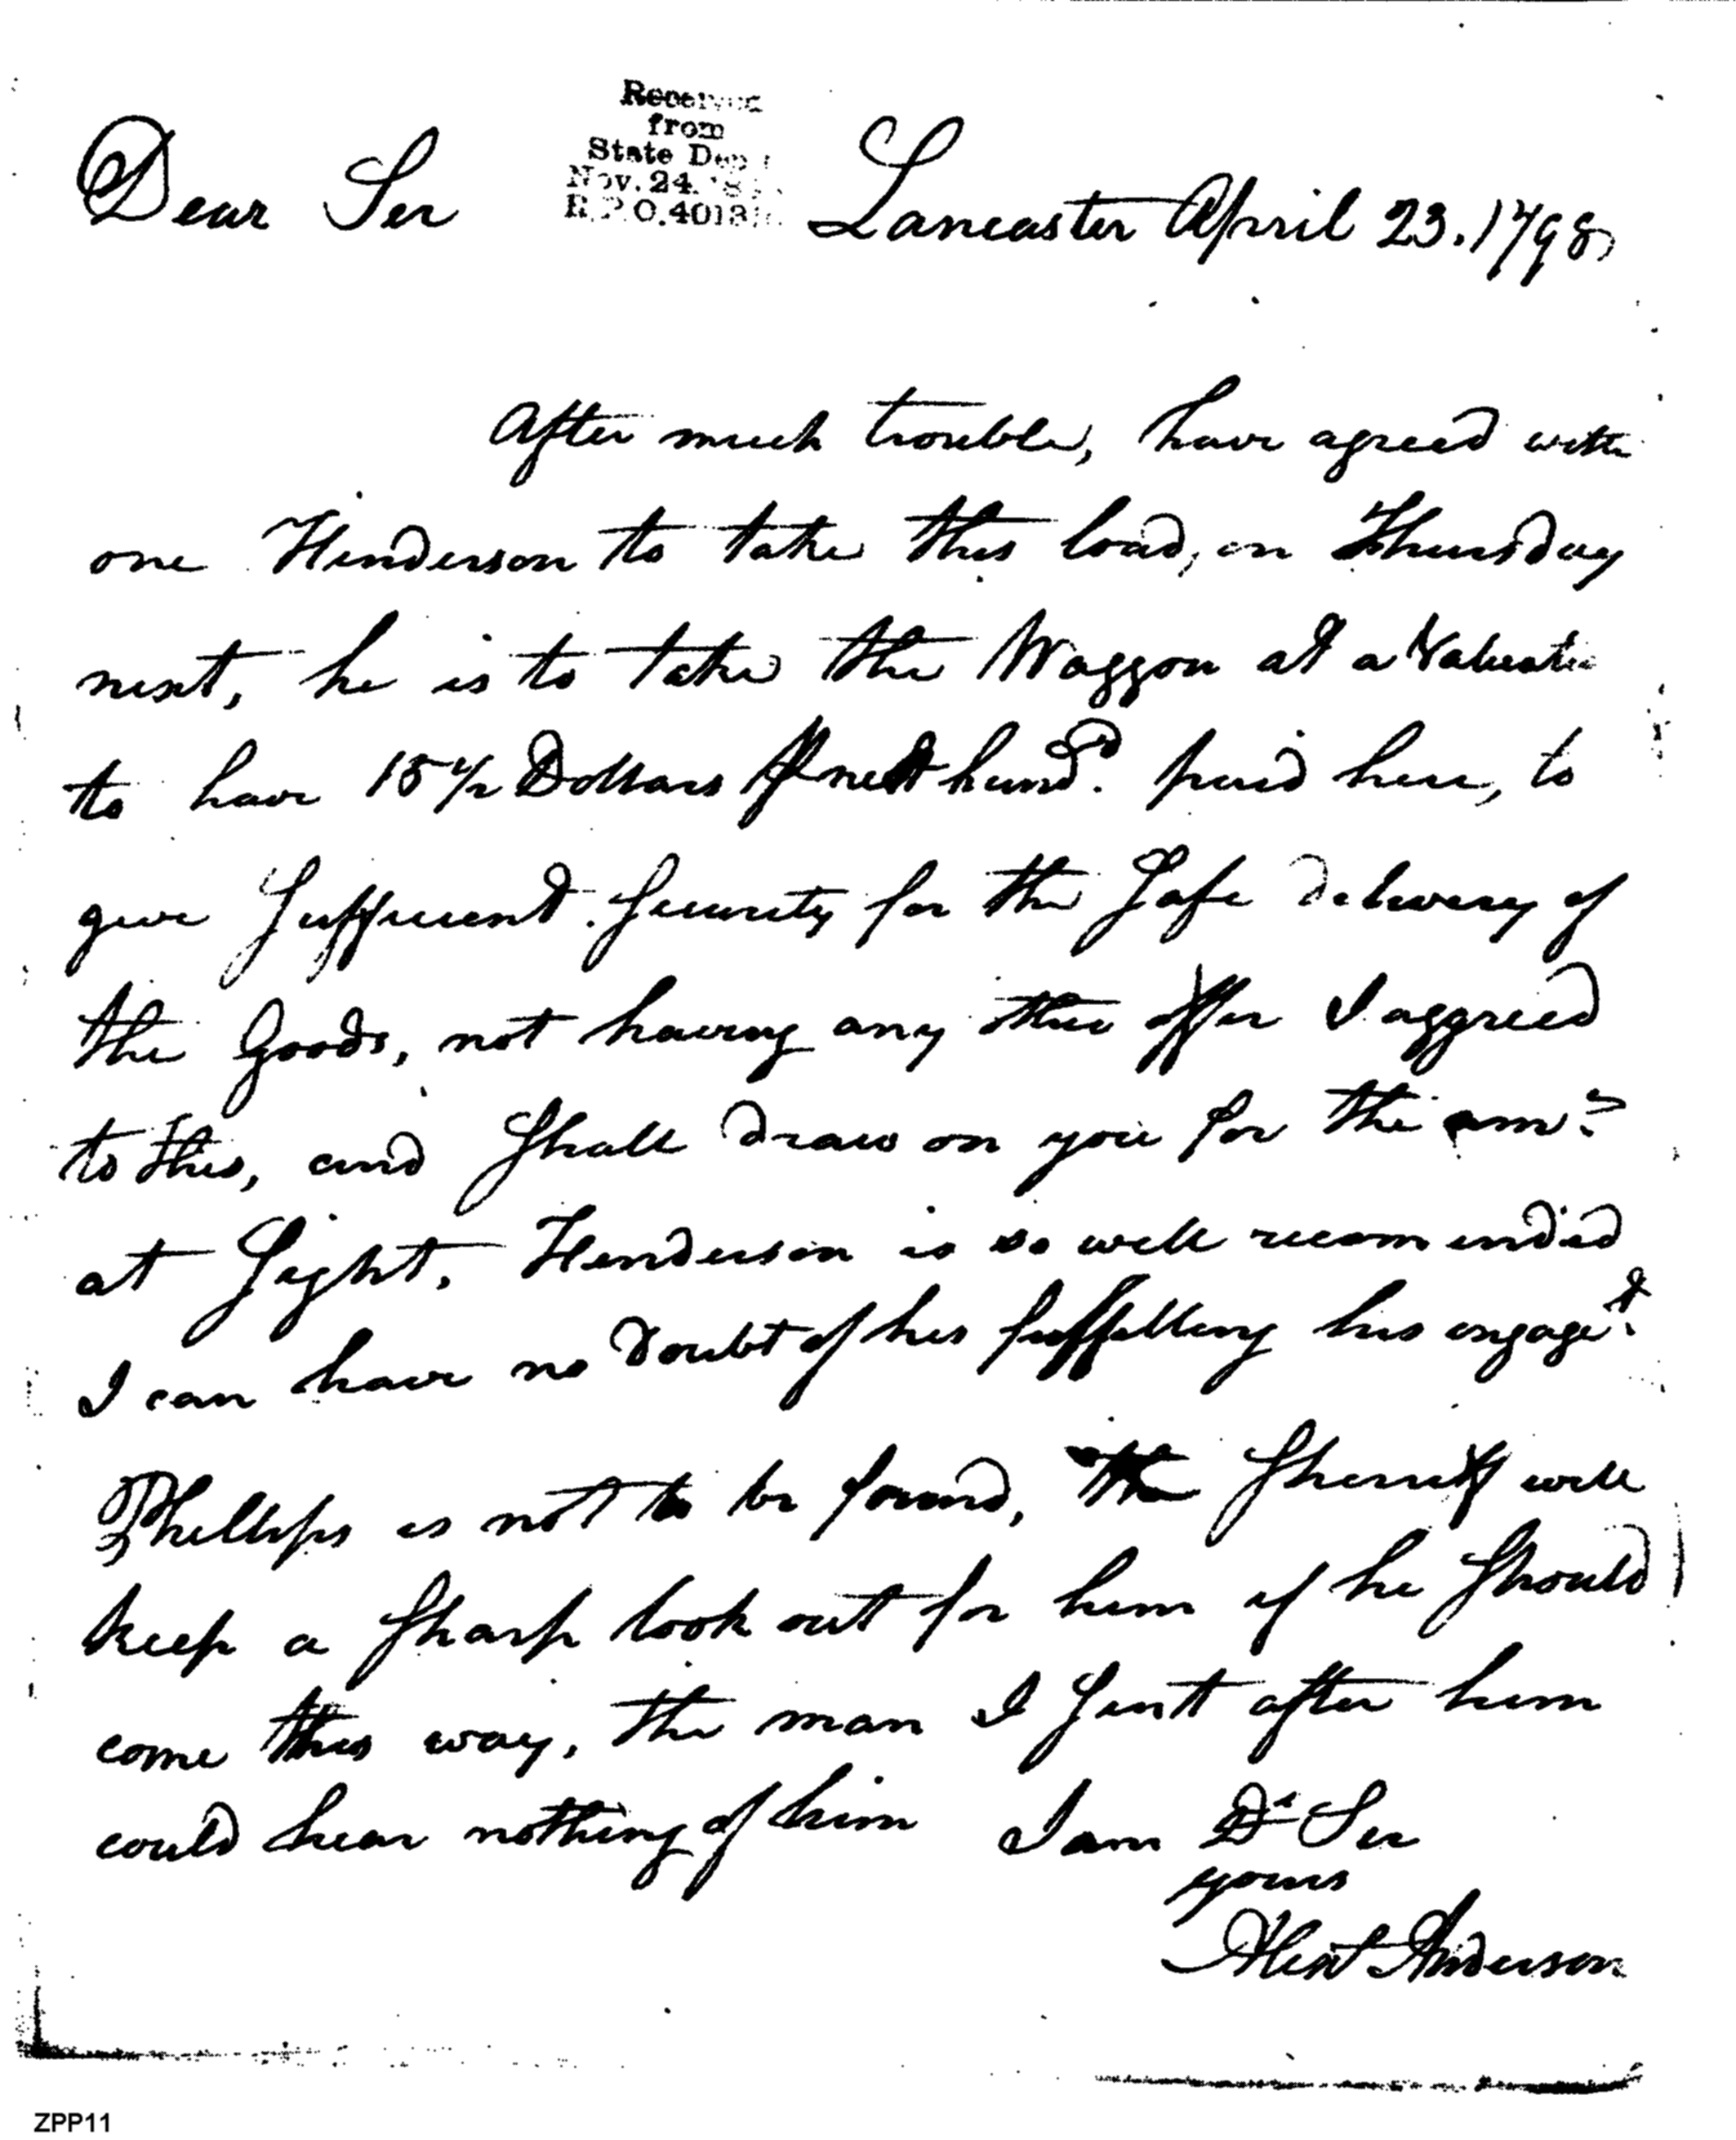 Received
from
State Dep
Nov. 24.
R.P.O. 4013
Dear Sir
Lancaster April 23. 1798
After much trouble, have agreed with
one Henderson to take this load, on Thursday
next, he is to take the Waggon at a Valuatn
to have 15 1/2 Dollars ⅌ nett hund.d paid here, to
give Sufficient Security for the Safe delivery of
the Goods, not having any other offer I aggreed
to this, and Shall draw on you for the am.t
at Sight. Henderson is so well recommended
I can have no doubt of his fulfilling his engage.t
Phillips is not to be found, the Sherriff will
keep a Sharp look out for him if he Should
come this way, the man I Sent after him
could hear nothing of him I am Dr Sir
yours
Alexr Anderson
ZPP11